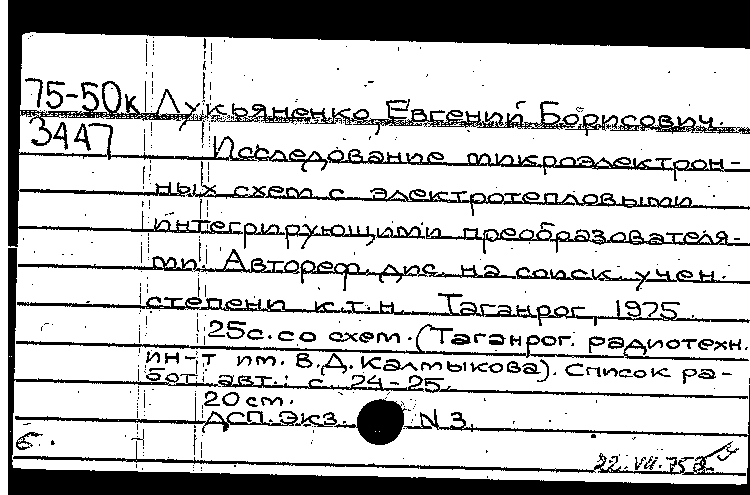 75-50к Лукьяненко, Евгений Борисович.
3447 Исследование микроэлектрон-
ных схем с электротепловыми
интегрирующими преобразователя-
ми. Автореф. дис. на соиск. учен.
степени к.т.н. Таганрог, 1975.
25с. со схем. (Таганрог. радиотехн.
ин-т им. В.Д. Калмыкова). Список ра-
бот авт.: с. 24-25.
20 см.
ДСП. Экз. N 3.
Б.
22.VII.75